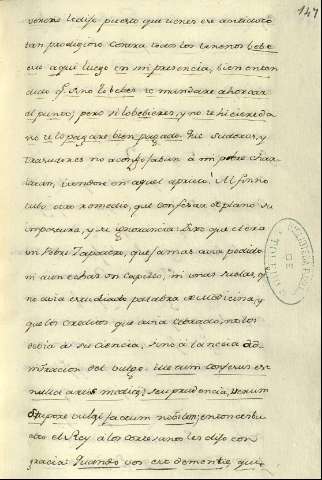 147
veneno le dixo puesto que tienes ese antidoto
tan prodigioso contra todos los venenos bebe
ese aqui luego en mi presencia, bien enten
dido q.e si no le bebes te mandare ahorcar
al punto; pero si lo bebieres, y no te hiciere da
no te lo pagare bien pagado. Que sudores, y
trasudores no acongojaban à mi pobre char
latan, viendose en aquel aprieto! Al fin no
tubo otro remedio, que confesar de plano su
impostura, y su ignorancia: dixo que el era
un Pobre Zapatero, que jamas avia podido
ni aun echar un Capillo, ni unas suelas, q.e
no avia estudiado palabra de Medicina, y
que los creditos que avia cobrado, no los
debia à su Ciencia, sino à la necia ad-
miracion del vulgo:
nulla artis medicæ, seu prudencia, verum
stupore vulgi factum nobilem; entonces bu
elto el Rey à los cortesanos les dixo con
gracia: Quando vos
DE
TOLEDO